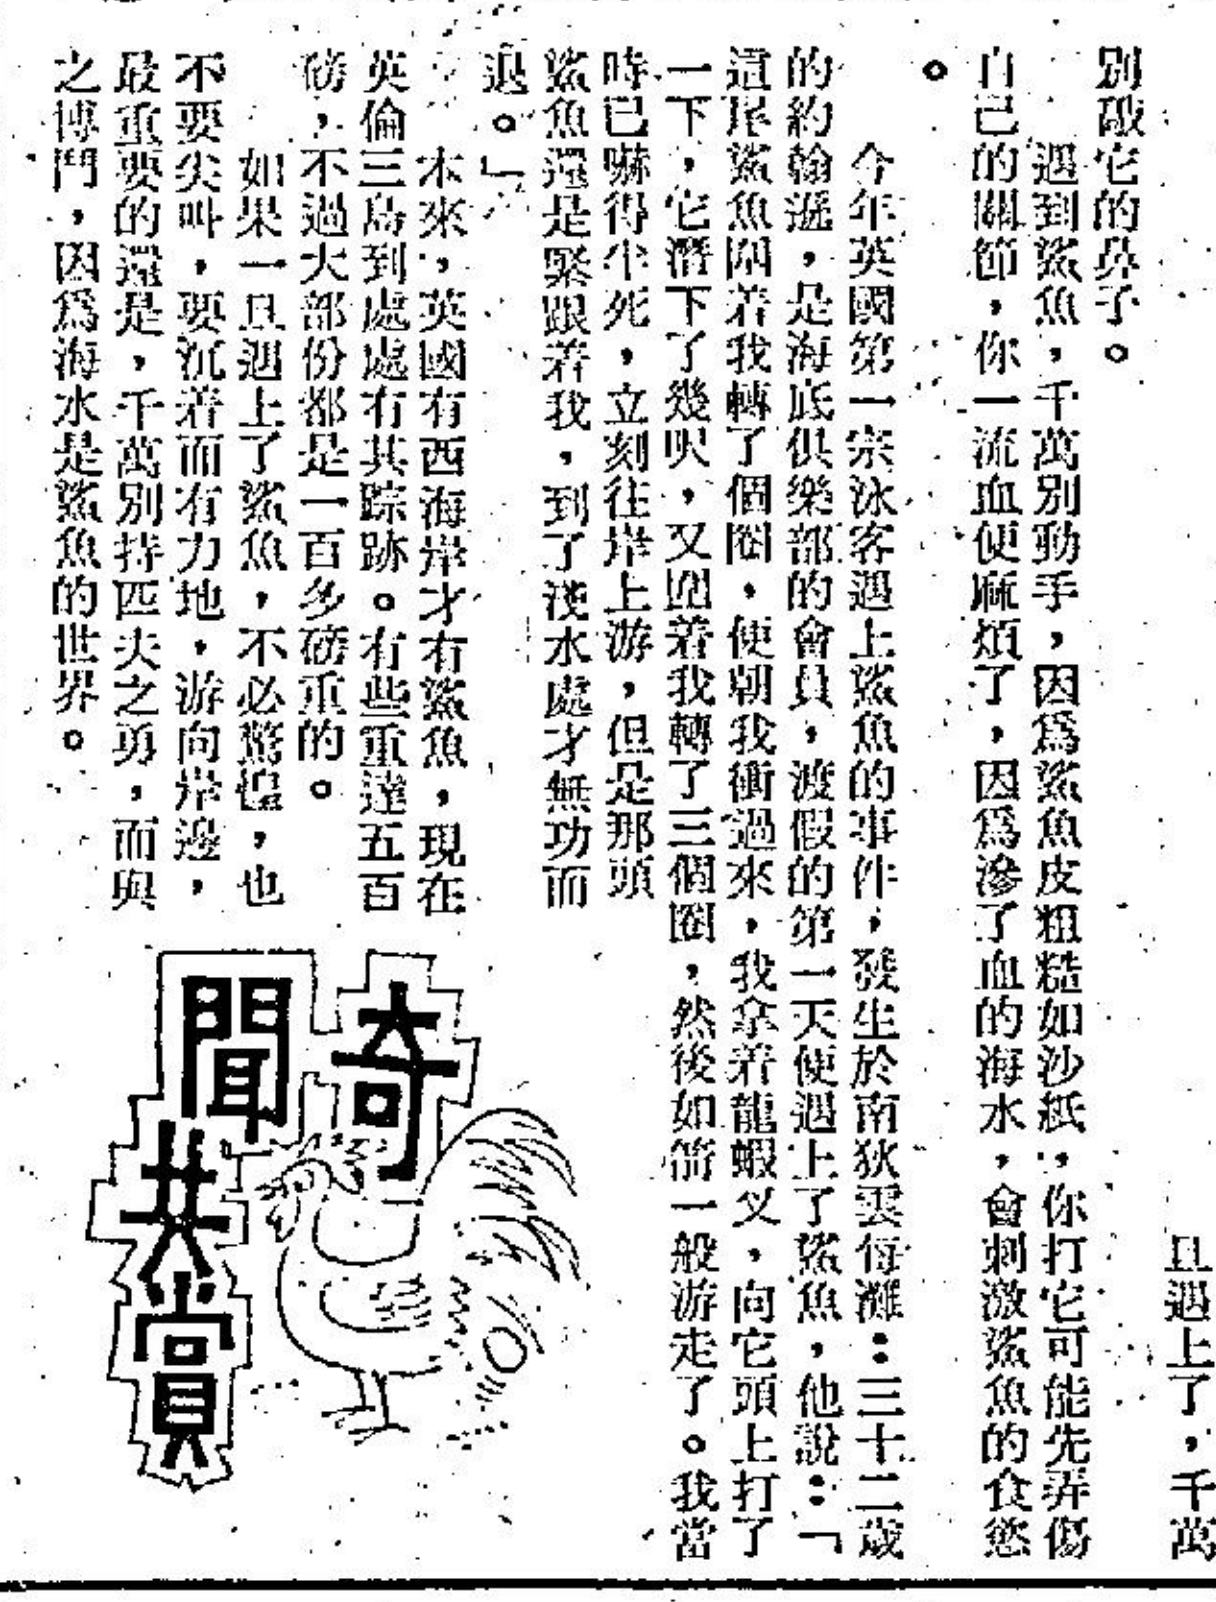 且遇上了，千萬
別敲它的鼻子。
遇到鯊魚，千萬別動手，因爲鯊魚皮粗糙如沙紙，你打它可能先弄傷
自己的關節，你一流血便麻煩了，因爲滲了血的海水，會刺激鯊魚的食慾
。
今年英國第一宗泳客遇上鯊魚的事件，發生於南狄雲每灘：三十二歲
的約翰遜，是海底俱樂部的會員，渡假的第一天便遇上了鯊魚，他說：「
這尾鯊魚圍着我轉了個圈，便朝我衝過來，我拿着龍蝦叉，向它頭上打了
一下，它潛下了幾呎，又圍着我轉了三個圈，然後如箭一般游走了。我當
時已嚇得半死，立刻往岸上游，但是那頭
鯊魚還是緊跟着我，到了淺水處才無功而
退。」
本來，英國有西海岸才有鯊魚，現在
英倫三島到處處有其踪跡。有些重達五百
磅，不過大部份都是一百多磅重的。
如果一旦遇上了鯊魚，不必驚惶，也
不要尖叫，要沉着而有力地，游向岸邊，
最重要的還是，千萬別持匹夫之勇，而與
之博鬥，因爲海水是鯊魚的世界。
奇聞共賞